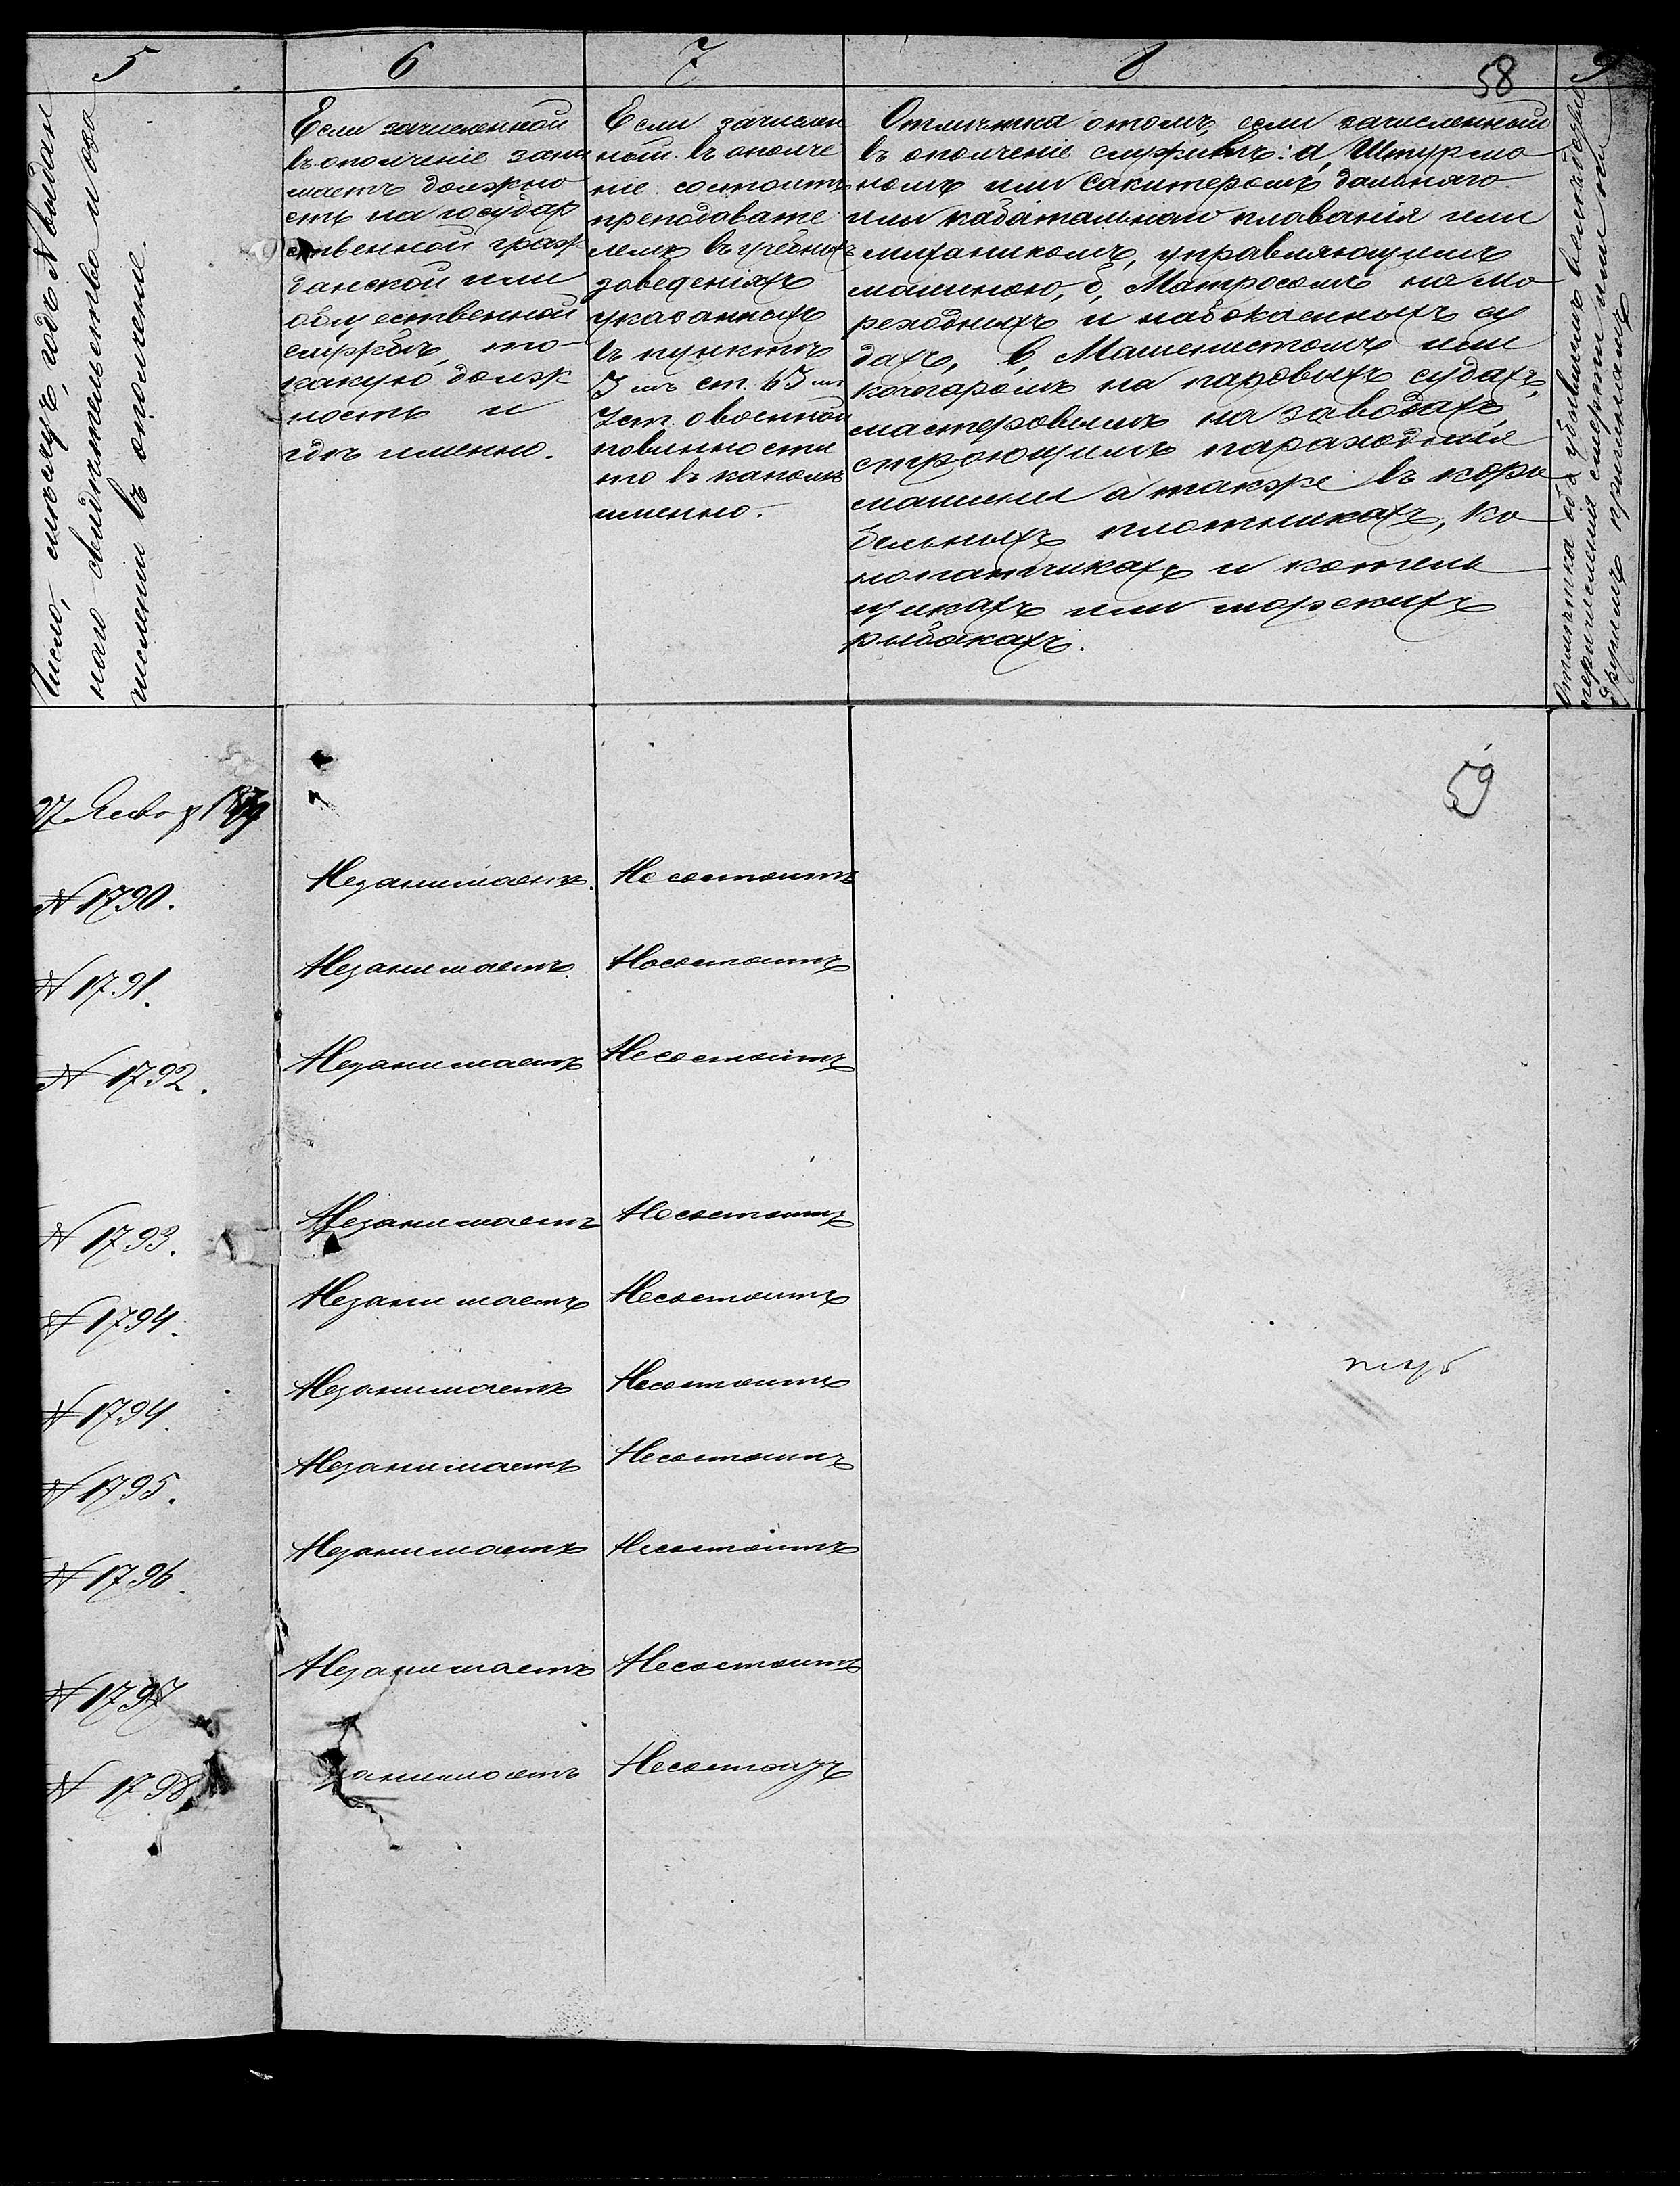 5
6
7
8
58
9
Число, месяцъ, годъ и № выдан
наго свидѣтельства о за
численіи въ ополченіе.
Если зачисленной
въ ополченіе зани
маетъ должно
сть на государ
ственной граж
данской или
общественной
службѣ, то
какую долж
ность и
гдѣ именно.
Если зачислен
ный въ ополче
ніе состоитъ
преподавате
лемъ въ учебныхъ
заведеніяхъ
указанныхъ
въ пунктѣ
3 мъ ст. 63 й
Уст. о военной
повинности
то въ какомъ
именно.
Отмѣтка о томъ, если зачисленный
въ ополченіе служитъ: а, Штурма
номъ или Шкиперомъ дальняго
или каботажнаго плаванія или
механикомъ, управляющимъ
машиною, б, Матросомъ на мо
реходныхъ и каботажныхъ су
дахъ, в, Машинистомъ или
кочегаромъ на паровыхъ судахъ,
мастеровымъ на заводахъ,
строющимъ пароходныя
машины а также въ кора
бельныхъ плотникахъ, ко
нопатчикахъ и котель
щикахъ или морскихъ
рыбакахъ.
Отмѣтка объ убывшихъ вслѣдствіе
перечисленія смерти или по
другимъ причинамъ
59
27 Января 1879
№ 1790.
Незанимаетъ.
Несостоитъ
№ 1791.
Незанимаетъ.
Несостоитъ
№ 1792.
Незанимаетъ
Несостоитъ
№ 1793.
Незанимаетъ
Несостоитъ
№ 1794.
Незанимаетъ
Несостоитъ
№ 1794.
Незанимаетъ
Несостоитъ
№ 1795.
Незанимаетъ
Несостоитъ
№ 1796.
Незанимаетъ
Несостоитъ
№ 1797
Незанимаетъ
Несостоитъ
№ 1798
занимаетъ
Несостоитъ